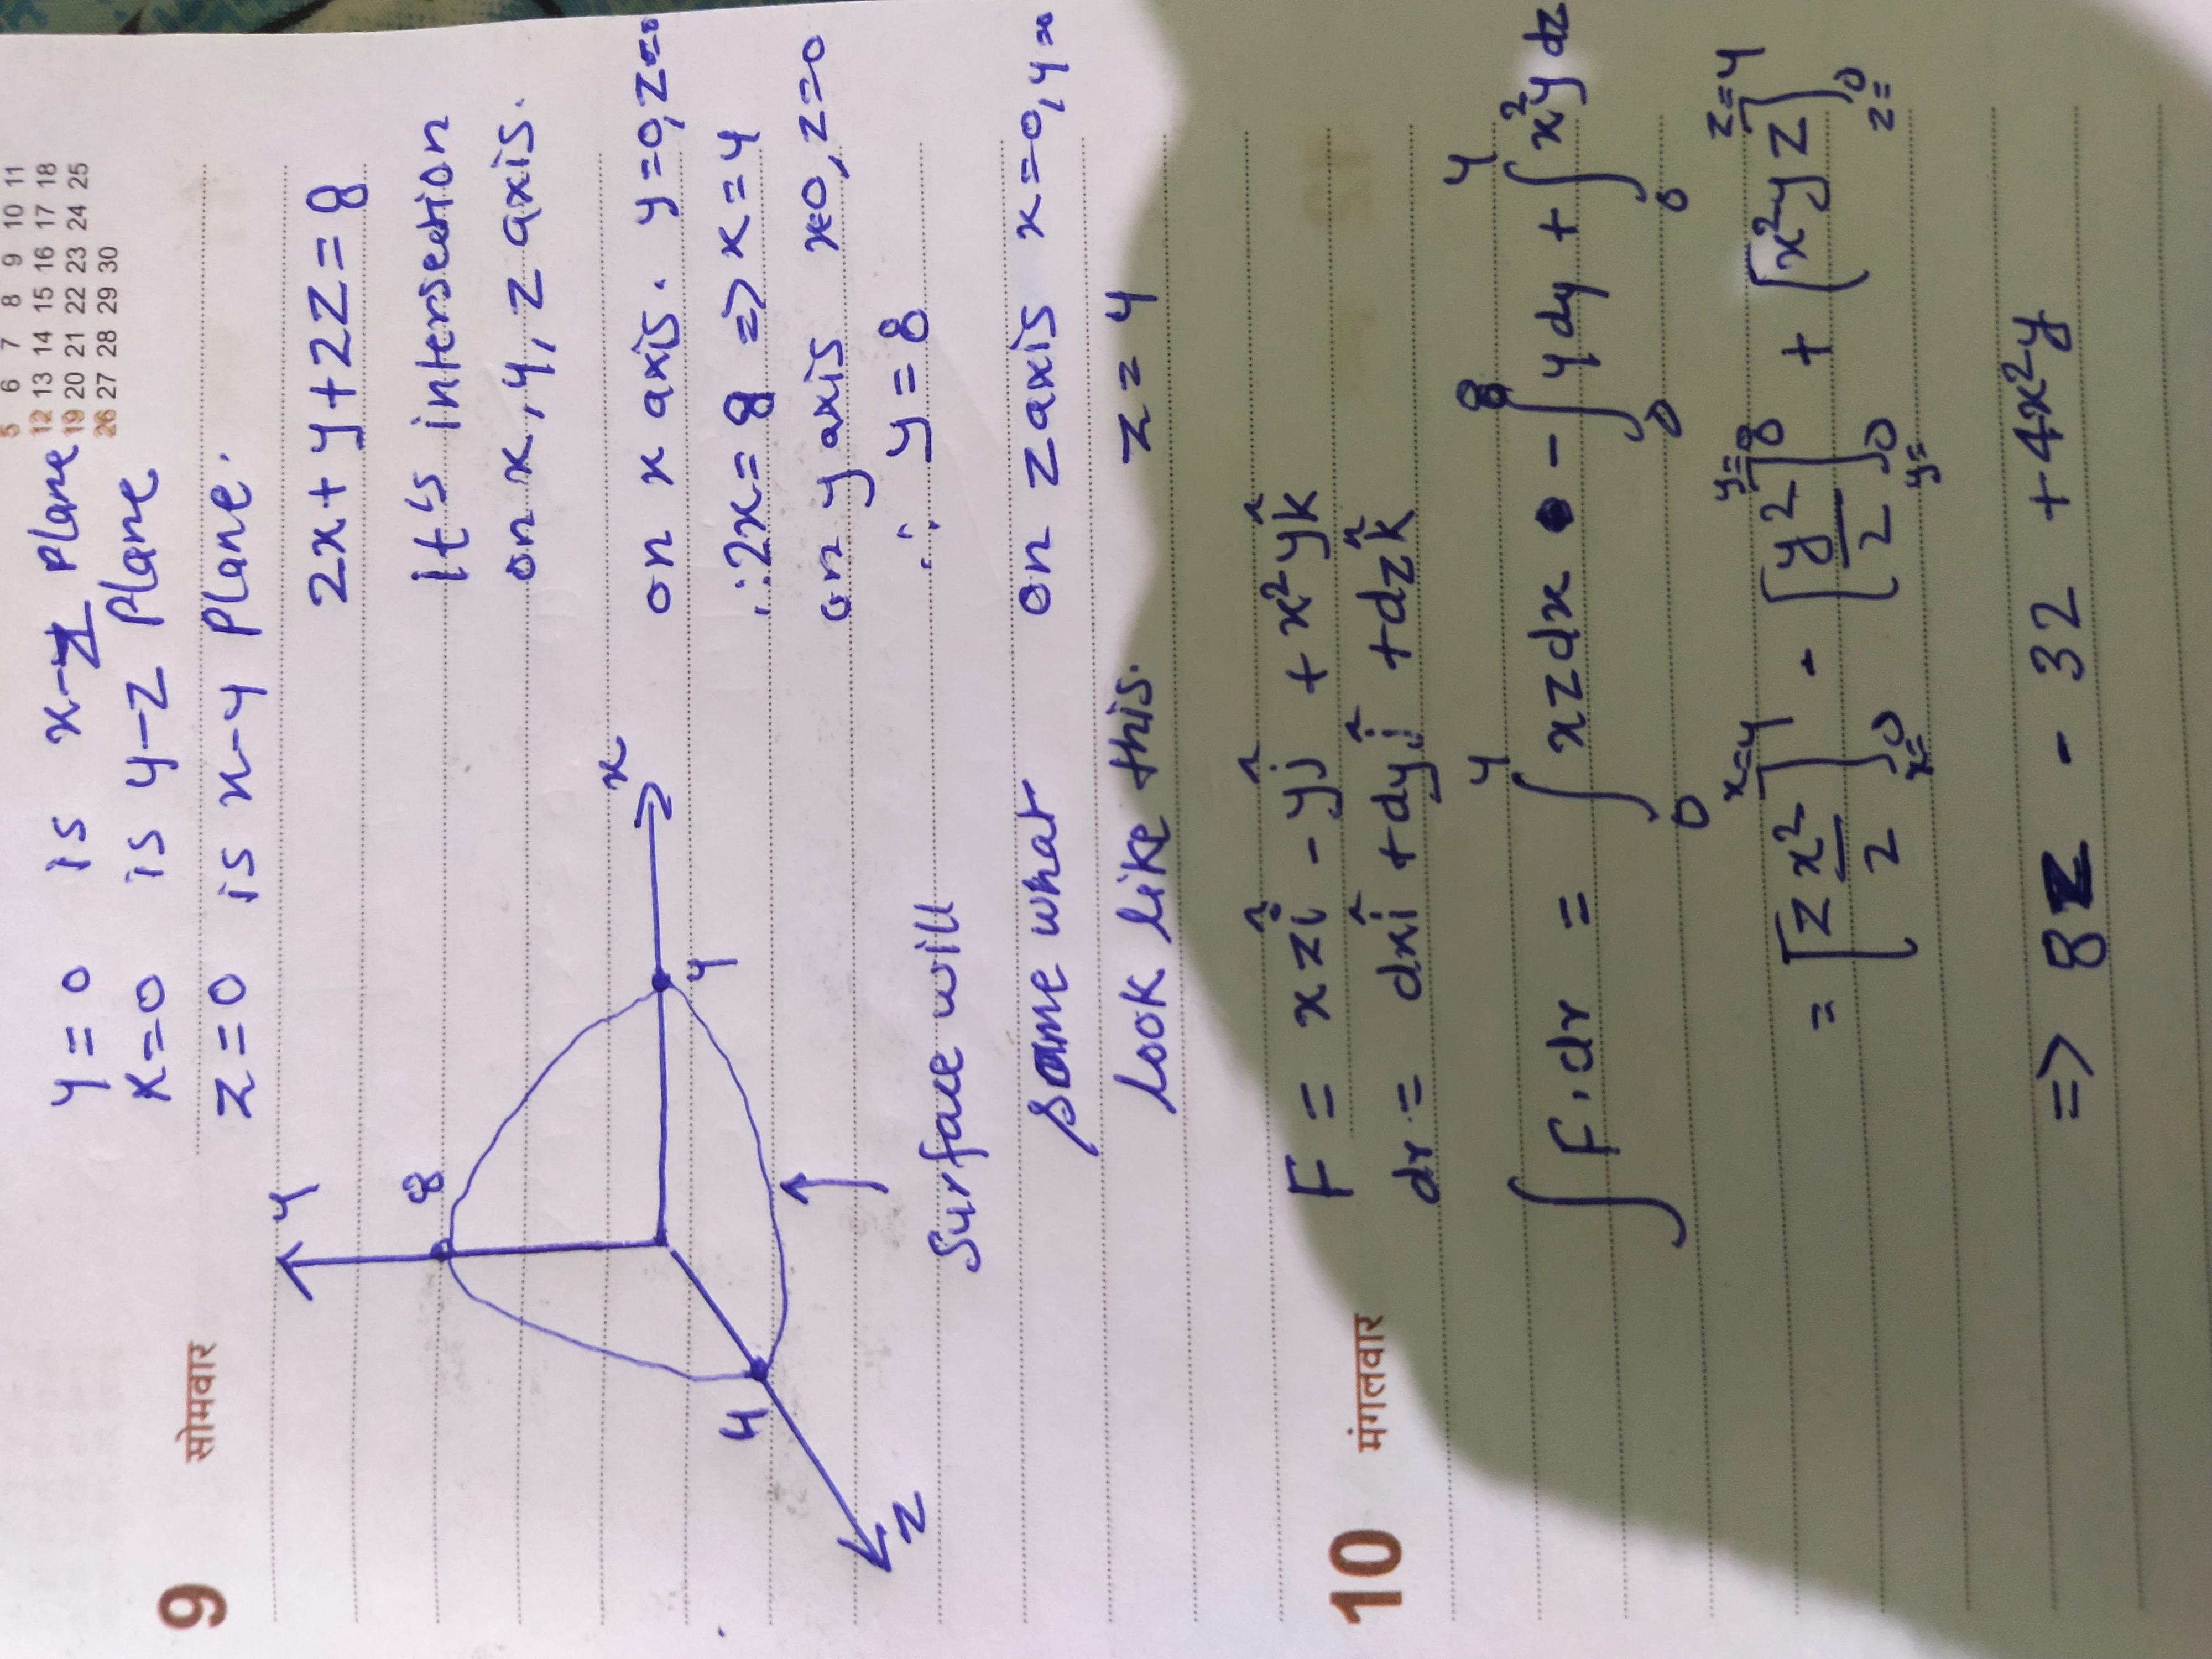 5 6 7 8 9 10 11
12 13 14 15 16 17 18
19 20 21 22 23 24 25
26 27 28 29 30
y = 0 is x-z plane
x=0 is y-z plane
z=0 is x-y plane.
9 सोमवार
2x+y+2z=8
It's intersection
on x, y, z axis.
on x axis. y=0, z=0
∴ 2x = 8 => x = 4
on y axis x=0, z=0
∴ y = 8
on z axis x=0, y=
z = 4
y
8
x
4
4
z
Surface will
some what
look like this.
10 मंगलवार
F = xzî - yĵ + x²yk̂
dr = dxî + dyĵ + dzk̂
∫F.dr = ∫₀⁴ xzdx - ∫₀⁸ ydy + ∫₀⁴ x²ydz
= [z x²/2]ₓ₌₀ˣ⁼⁴ - [y²/2]_{y=0}^{y=8} + [x²yz]_{z=0}^{z=4}
=> 8z - 32 + 4x²y